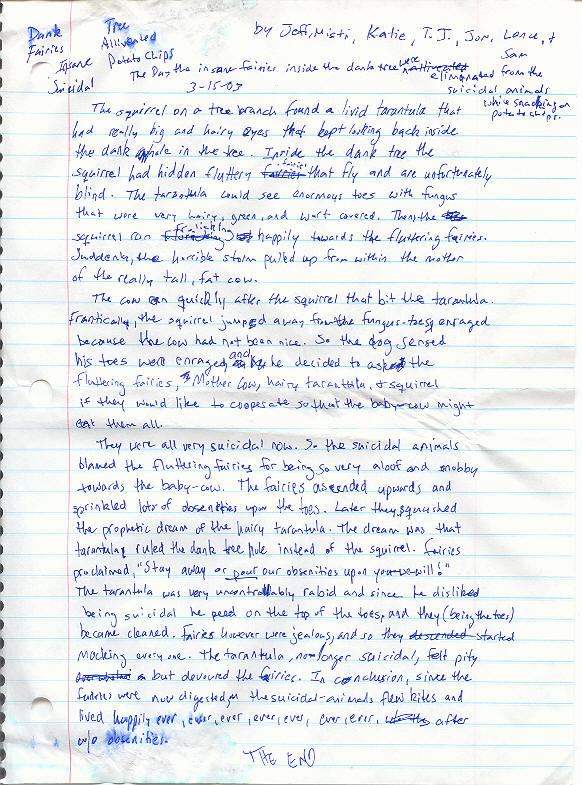 Dank Tree by Jeff, Misti, Katie, T.J., Jon, Lance, +
Fairies Allivented Sam
Insane Potato Chips
Suicidal The Day the insane fairies inside the dank tree were eliminated from the
3-15-03 suicidal animals
while snacking on
potato chips.
The squirrel on a tree branch found a livid tarantula that
had really big and hairy eyes that kept looking back inside
the dank hole in the tree. Inside the dank tree the
squirrel had hidden fluttery fairies that fly and are unfortunately
blind. The tarantula could see enormous toes with fungus
that were very hairy, green, and wart covered. Then, the
squirrel ran frolicking happily towards the fluttering fairies.
Suddenly, the horrible storm pulled up from within the mother
of the really tall, fat cow.
The cow ran quickly after the squirrel that bit the tarantula.
Frantically, the squirrel jumped away from the fungus-toes, enraged
because the cow had not been nice. So the dog sensed
his toes were enraged, and he decided to ask the
fluttering fairies, Mother Cow, hairy tarantula, + squirrel
if they would like to cooperate so that the baby-cow might
eat them all.
They were all very suicidal now. So the suicidal animals
blamed the fluttering fairies for being so very aloof and snobby
towards the baby-cow. The fairies ascended upwards and
sprinkled lots of obsenities upon the toes. Later they squashed
the prophetic dream of the hairy tarantula. The dream was that
tarantulas ruled the dank tree hole instead of the squirrel. Fairies
proclaimed, "Stay away or pour our obsenities upon you we will!"
The tarantula was very uncontrollably rabid and since he disliked
being suicidal he peed on the top of the toes, and they (being the toes)
became cleaned. Fairies however were jealous, and so they descended started
mocking everyone. The tarantula, no longer suicidal, felt pity
but devoured the fairies. In conclusion, since the
fairies were now digested, the suicidal-animals flew kites and
lived happily ever, ever, ever, ever, ever, ever, ever, after
w/o obsenities.
THE END